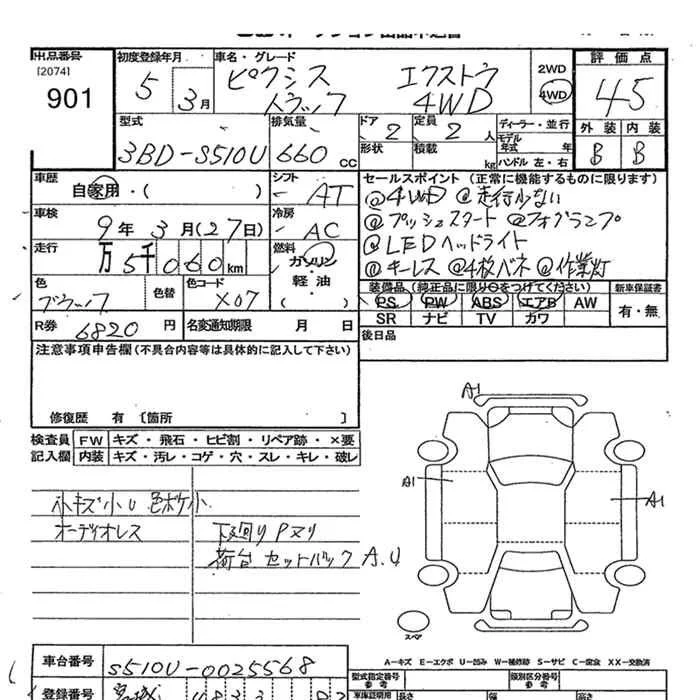 出品番号 初度登録年月 車名・グレード 評価点
[2074] 5 3月 ピクシス エクストラ 2WD 45
901 トラック 4WD 4WD
型式 排気量 ドア 定員 ディーラー・並行 外装 内装
3BD-S510U 660 CC 2 2人 モデル年式 年 B B
形状 積載 kg ハンドル 左・右
車歴 シフト セールスポイント (正常に機能するものに限ります)
自家用・( ) AT @4WD @走行少ない
車検 冷房 @プッシュスタート @フォグランプ
9年3月(27日) AC @LEDヘッドライト
走行 燃料 @キーレス @4枚バネ @作業灯
万5千060km ガソリン・軽油
( )
色 色替 色コード 装備品 (純正品に限り○をつけてください) 新車保証書
X07 PS PW ABS エアB AW 有・無
SR ナビ TV カワ
R券 6820円 名変通知期限 月 日 後日品
注意事項申告欄(不具合内容等は具体的に記入して下さい)
修復歴 有 〔箇所 〕
検査員 FW キズ・飛石・ヒビ割・リペア跡・×要
記入欄 内装 キズ・汚レ・コゲ・穴・スレ・キレ・破レ
A1
A1
A1
小キズ小U色ボケ小
オーディオレス 下廻りPヌリ
荷台セットバックA.U
スペア
車台番号 S510U-0025568
A-キズ E-エクボ U-凹み W-補修跡 S-サビ C-腐食 XX-交換済
型式指定番号 類別区分番号
参考 参考
登録番号 宮城
車庫証明用 長さ 幅 高さ